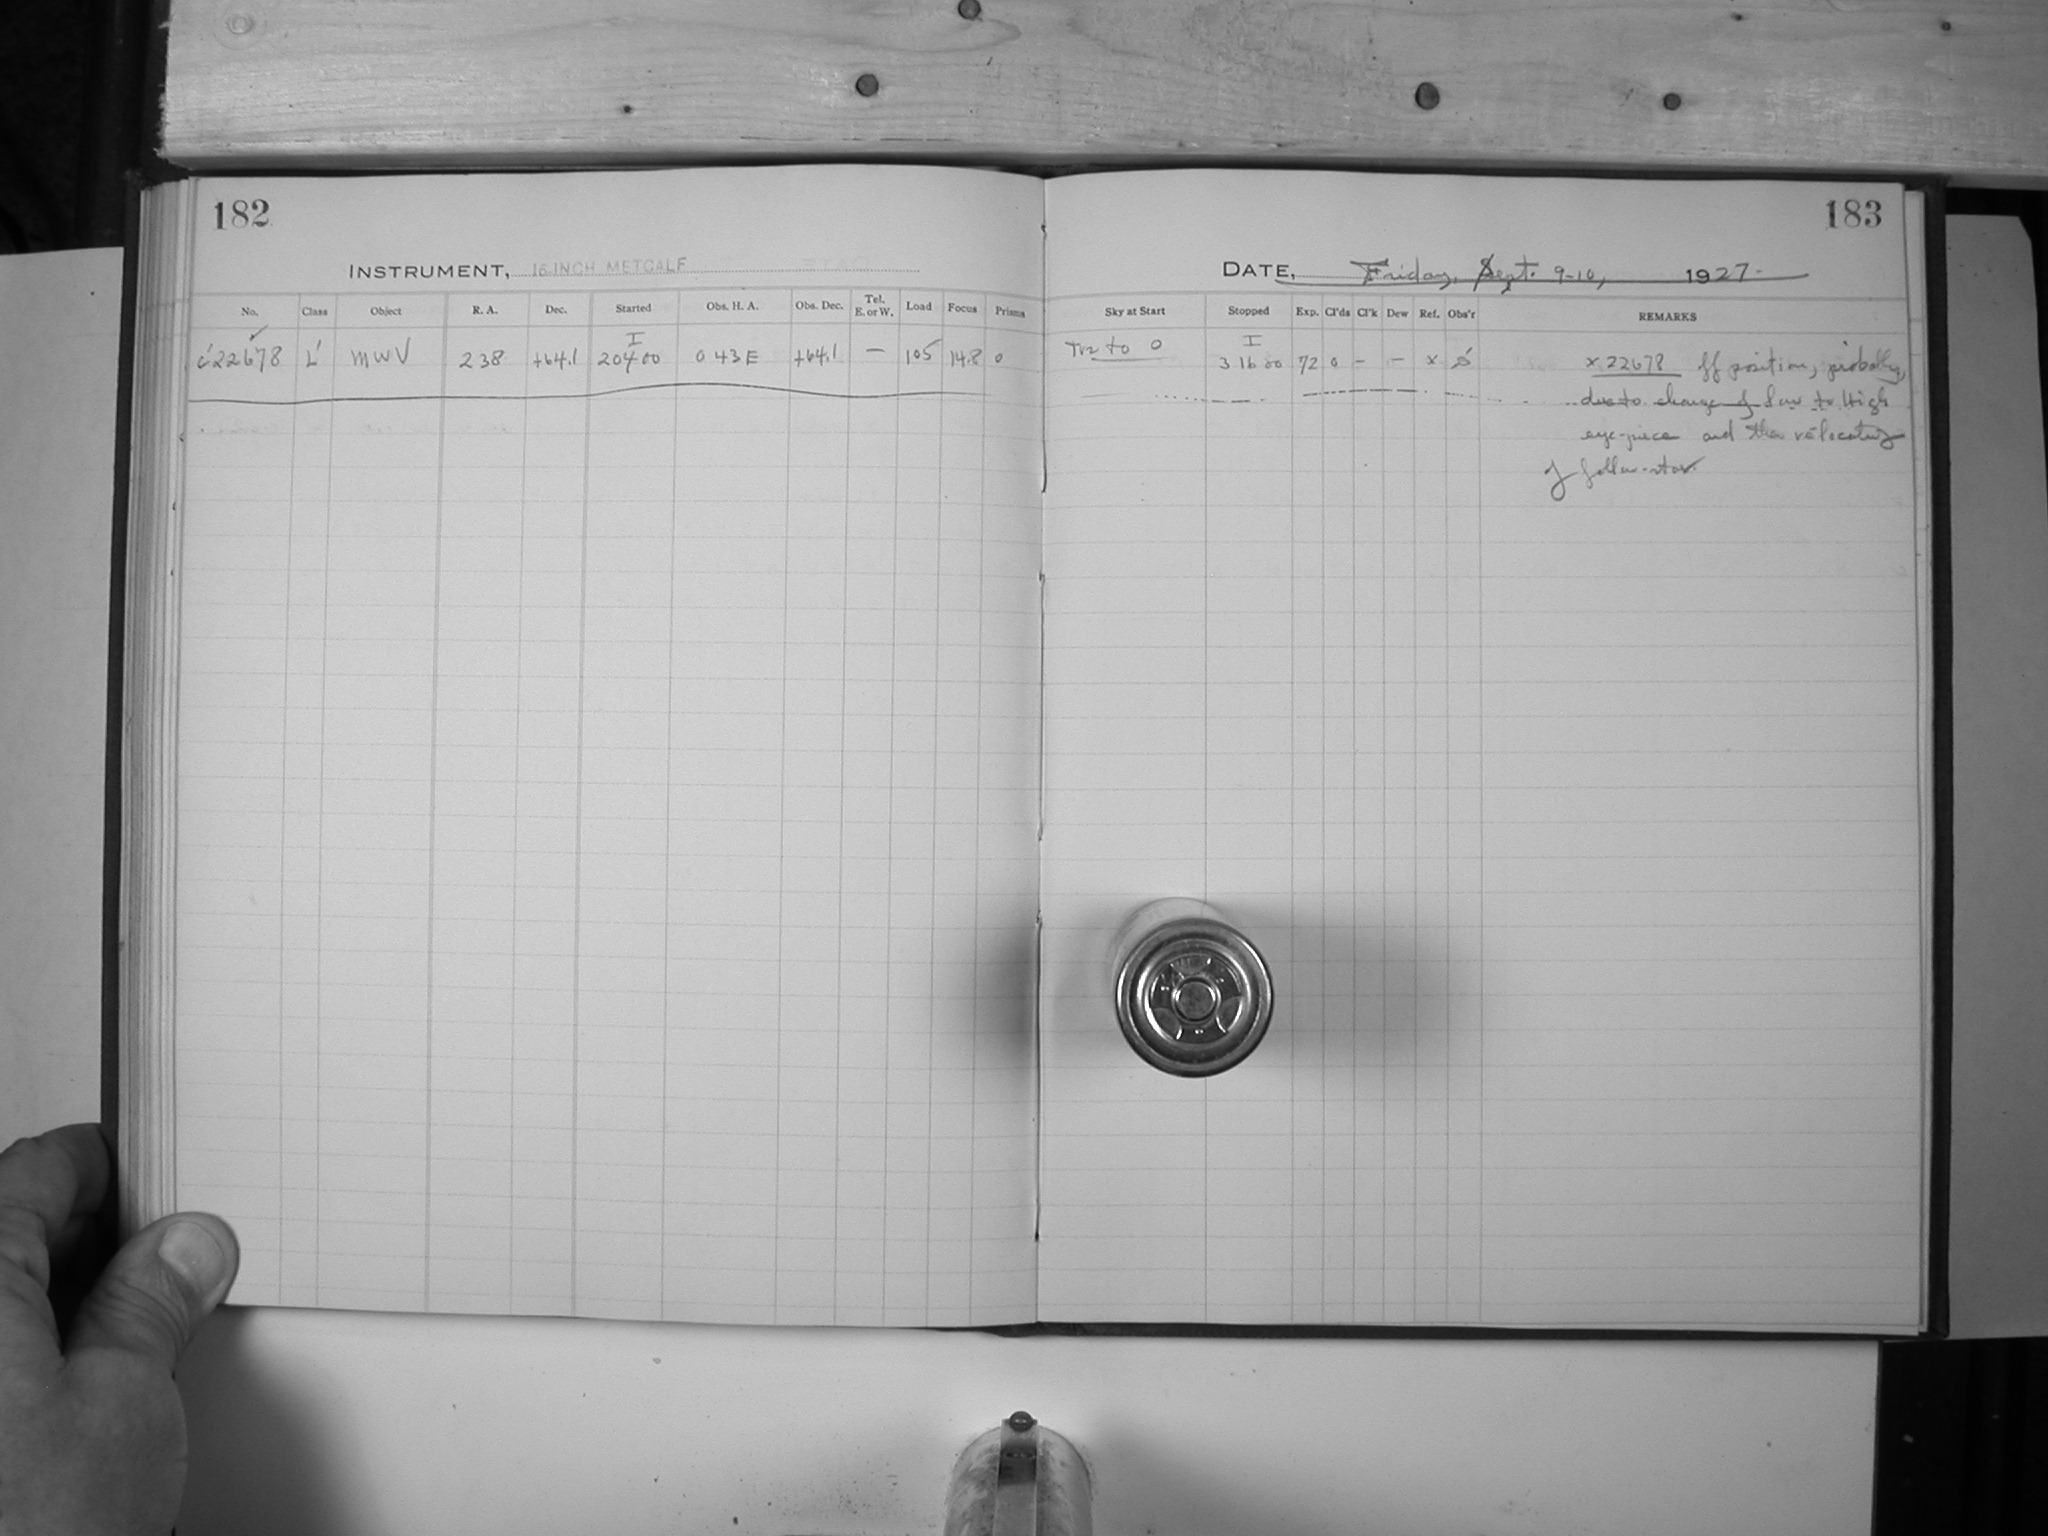 182
INSTRUMENT, 16-INCH METCALF
No. Class Object R. A. Dec. Started Obs. H. A. Obs. Dec. Tel. E. or W. Load Focus Prisms
I
22678 L MWV 2 38 +64.1 2 04 00 0 43 E +64.1 — 105 14.8 0
183
DATE, Friday, Sept. 9-10, 1927-
Sky at Start Stopped Exp. Cl'ds Cl'k Dew Ref. Obs'r REMARKS
I
to 0 3 16 00 72 0 – – x x 22678 off position, probably,
due to change of low to High
eye-piece and the relocating
of follow-star.